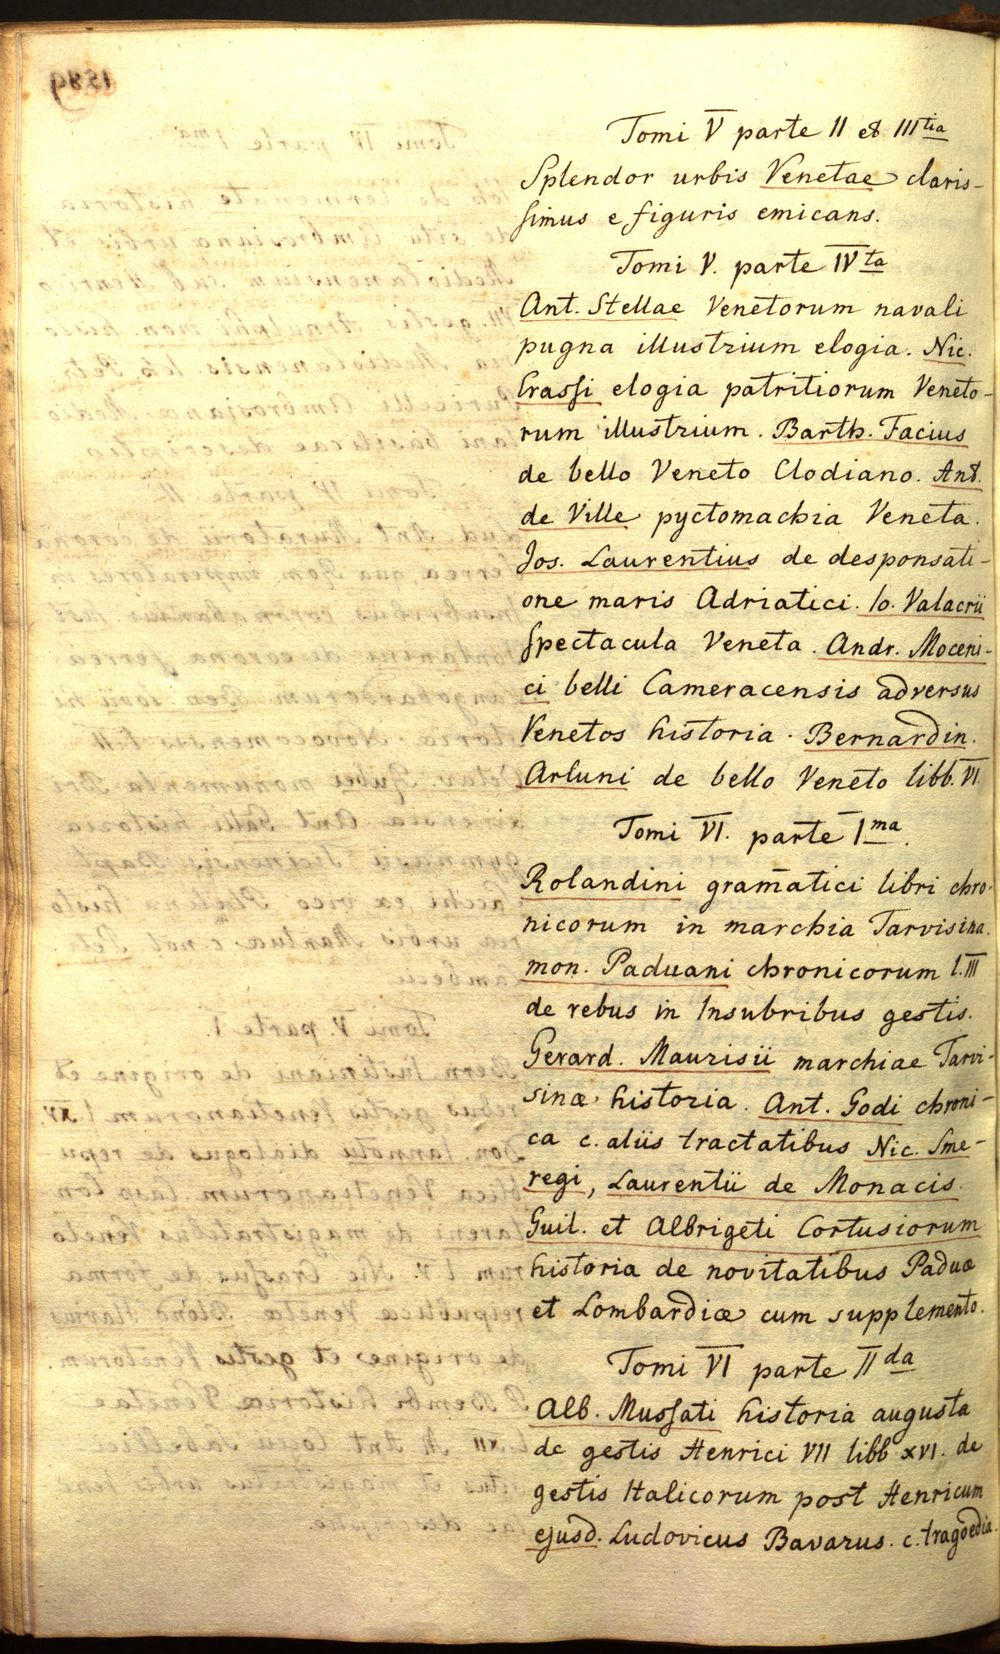 Tomi V parte II et III tia
Splendor urbis Venetae claris-
simus e figuris emicans.
Tomi V. parte IV ta
Ant. Stellae Venetorum navali
pugna illustrium elogia. Nic.
Crassi elogia patritiorum Veneto-
rum illustrium. Barth. Facius
de bello Veneto Clodiano. Ant.
de Ville pyctomachia Veneta.
Jos. Laurentius de desponsati-
one maris Adriatici. Io. Valacrii
spectacula Veneta. Andr. Moceni-
ci belli Cameracensis adversus
Venetos historia. Bernardin.
Arluni de bello Veneto libb. VI.
Tomi VI. parte I ma.
Rolandini gram̄atici libri chro-
nicorum in marchia Tarvisina.
mon. Paduani chronicorum l. III
de rebus in Insubribus gestis.
Gerard. Maurisii marchiae Tarvi-
sinæ historia. Ant. Godi chroni-
ca c. aliis tractatibus Nic. Sme-
regi, Laurentii de Monacis.
Guil. et Albrigeti Cortusiorum
historia de novitatibus Paduæ
et Lombardiæ cum supplemento.
Tomi VI parte II da
Alb. Mussati historia augusta
de gestis Henrici VII libb XVI. de
gestis Italicorum post Henricum
ejusd. Ludovicus Bavarus. c. tragoedia.